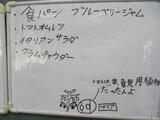 食パン ブルーベリージャム
・トマトオムレツ
・イタリアンサラダ
・クラムチャウダー
トマトは昔、観賞用植物
だったんよ